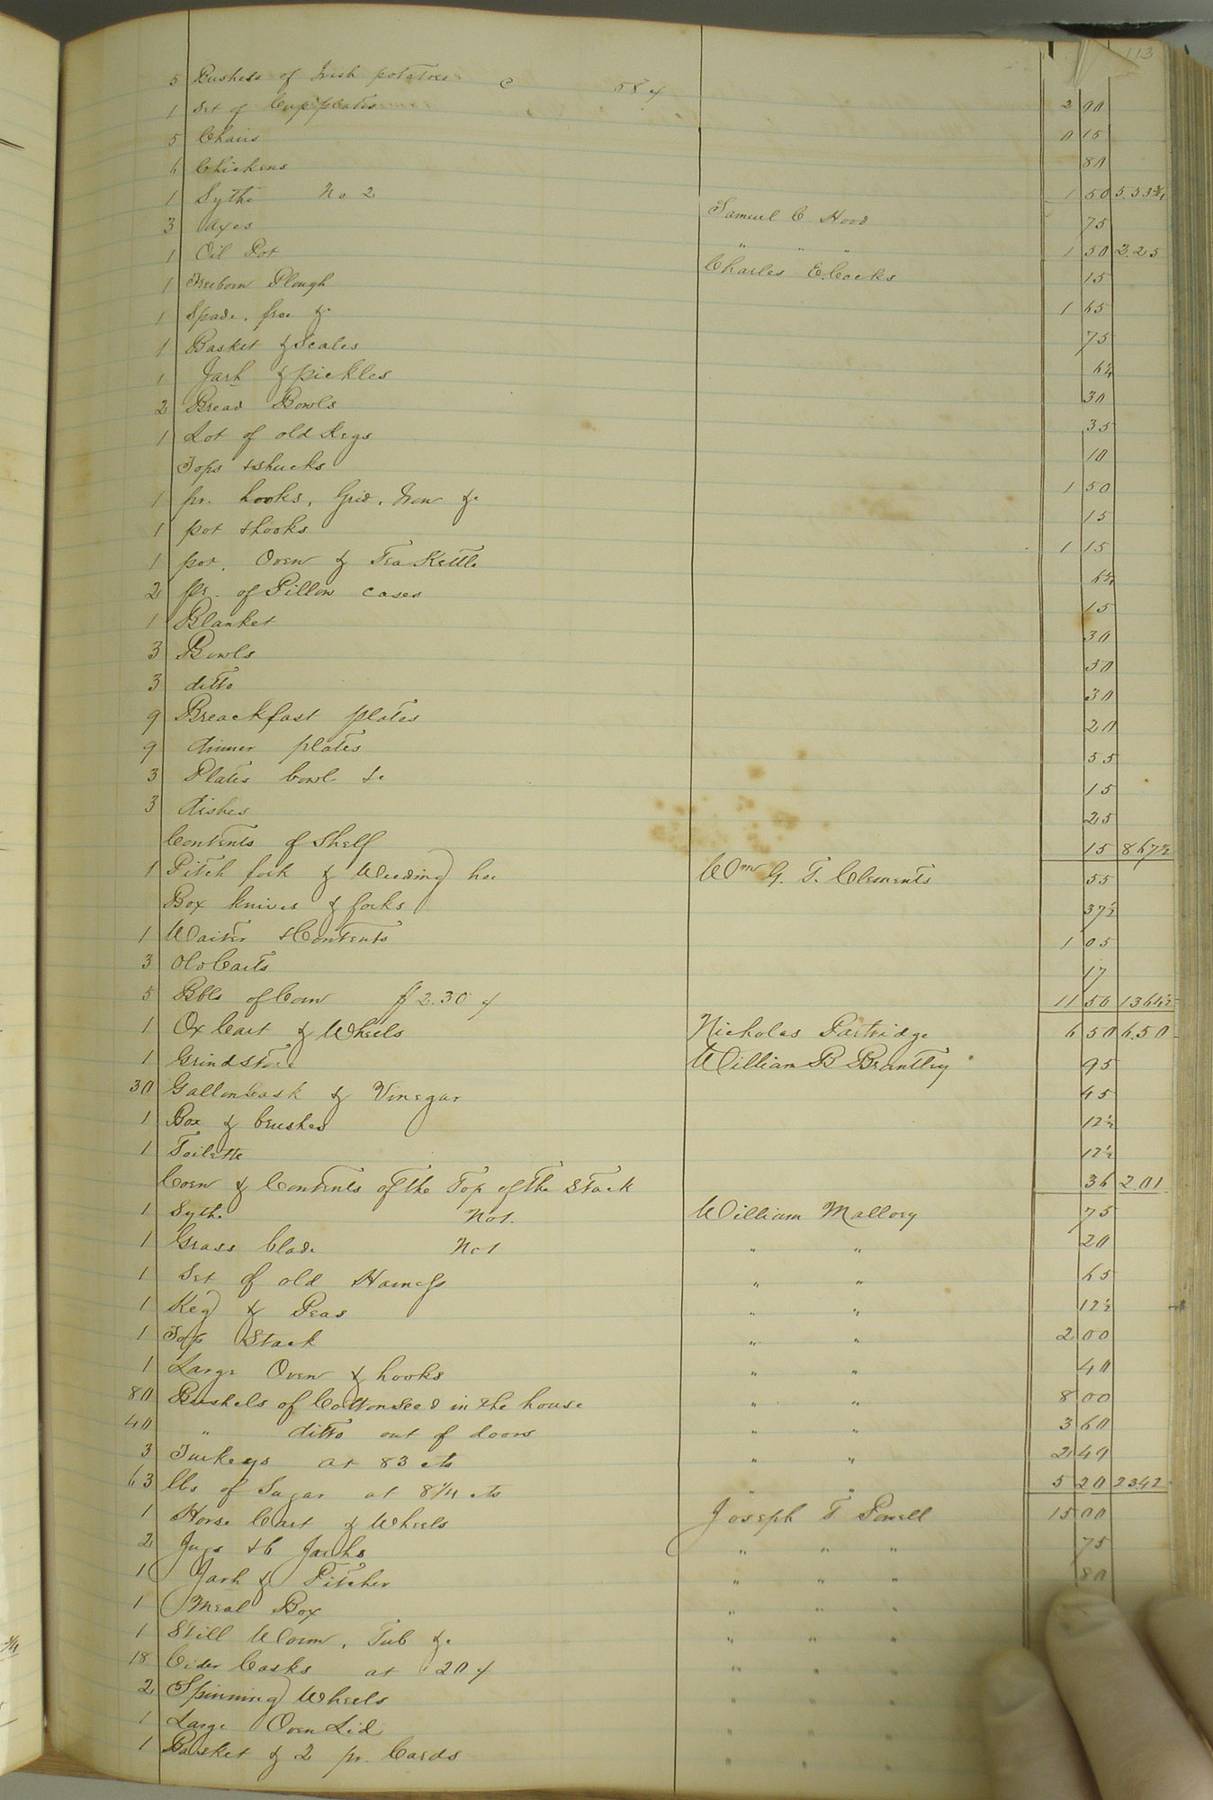 113
5 Bushels of Irish potatoes @ 58 ¢ 2 90
1 Set of Cup plates 0 15
5 Chairs 80
6 Chickens 1 50 5.53¾
1 Sythe No 2 Samuel C Hood 75
3 Axes " " " 1 50 2.25
1 Oil Pot Charles E. Cocks 15
1 Freeborn Plough 1 65
1 Spade, froe &c 75
1 Basket & Scales 6¼
1 Jarh & pickles 30
2 Bread Bowls 35
1 Lot of old Kegs 10
Tops & Shucks 1 50
1 pr. hooks, Grid. Iron &c 15
1 pot & hooks 1 15
1 pot, Oven & Tea Kettle 6¼
2 pr. of Pillow cases 15
1 Blanket 30
3 Bowls 50
3 ditto 30
9 Breackfast plates 20
9 dinner plates 55
3 Plates bowl &c 15
3 dishes 25
Contents of Shelf 15 8 67½
1 Pitch fork & Weeding hoe Wm G. T. Clements 55
Box knives & forks 37½
1 Waiter & Contents 1 05
3 Old Carts 17
5 Bbls of Corn $2.30 ¢ 11 50 13 64½
1 Ox Cart & Wheels Nicholas Partridge 6 50 6.50
1 Grindstone William B Brantley 95
30 Gallon Cask & Vinegar 45
1 Box & brushes 12½
1 Toilette 12½
Corn & Contents of the Top of the Stack 36 2.01
1 Sythe No 1. William Mallory 75
1 Grass blade No 1 " " 20
1 Set of old Harness " " 65
1 Keg & Peas " " 12½
1 Top Stack " " 2 00
1 Large Oven & hooks " " 40
80 Bushels of Cotton Seed in the house " " 8 00
40 " ditto out of doors " " 3 60
3 Turkeys at 83 cts " " 2 49
63 lbs of Sugar at 8¼ cts " " 5 20 23 42
1 Horse Cart & Wheels Joseph T Powell 15 00
2 Jugs & 6 Jarhs " " " 75
1 Jarh & Pitcher " " " 80
1 Meal Box " " "
1 Still Worm, Tub &c " " "
18 Cider Casks at 20 ¢ " " "
2 Spinning Wheels " " "
1 Large Oven Lid " " "
1 Basket & 2 pr. Cards " " "